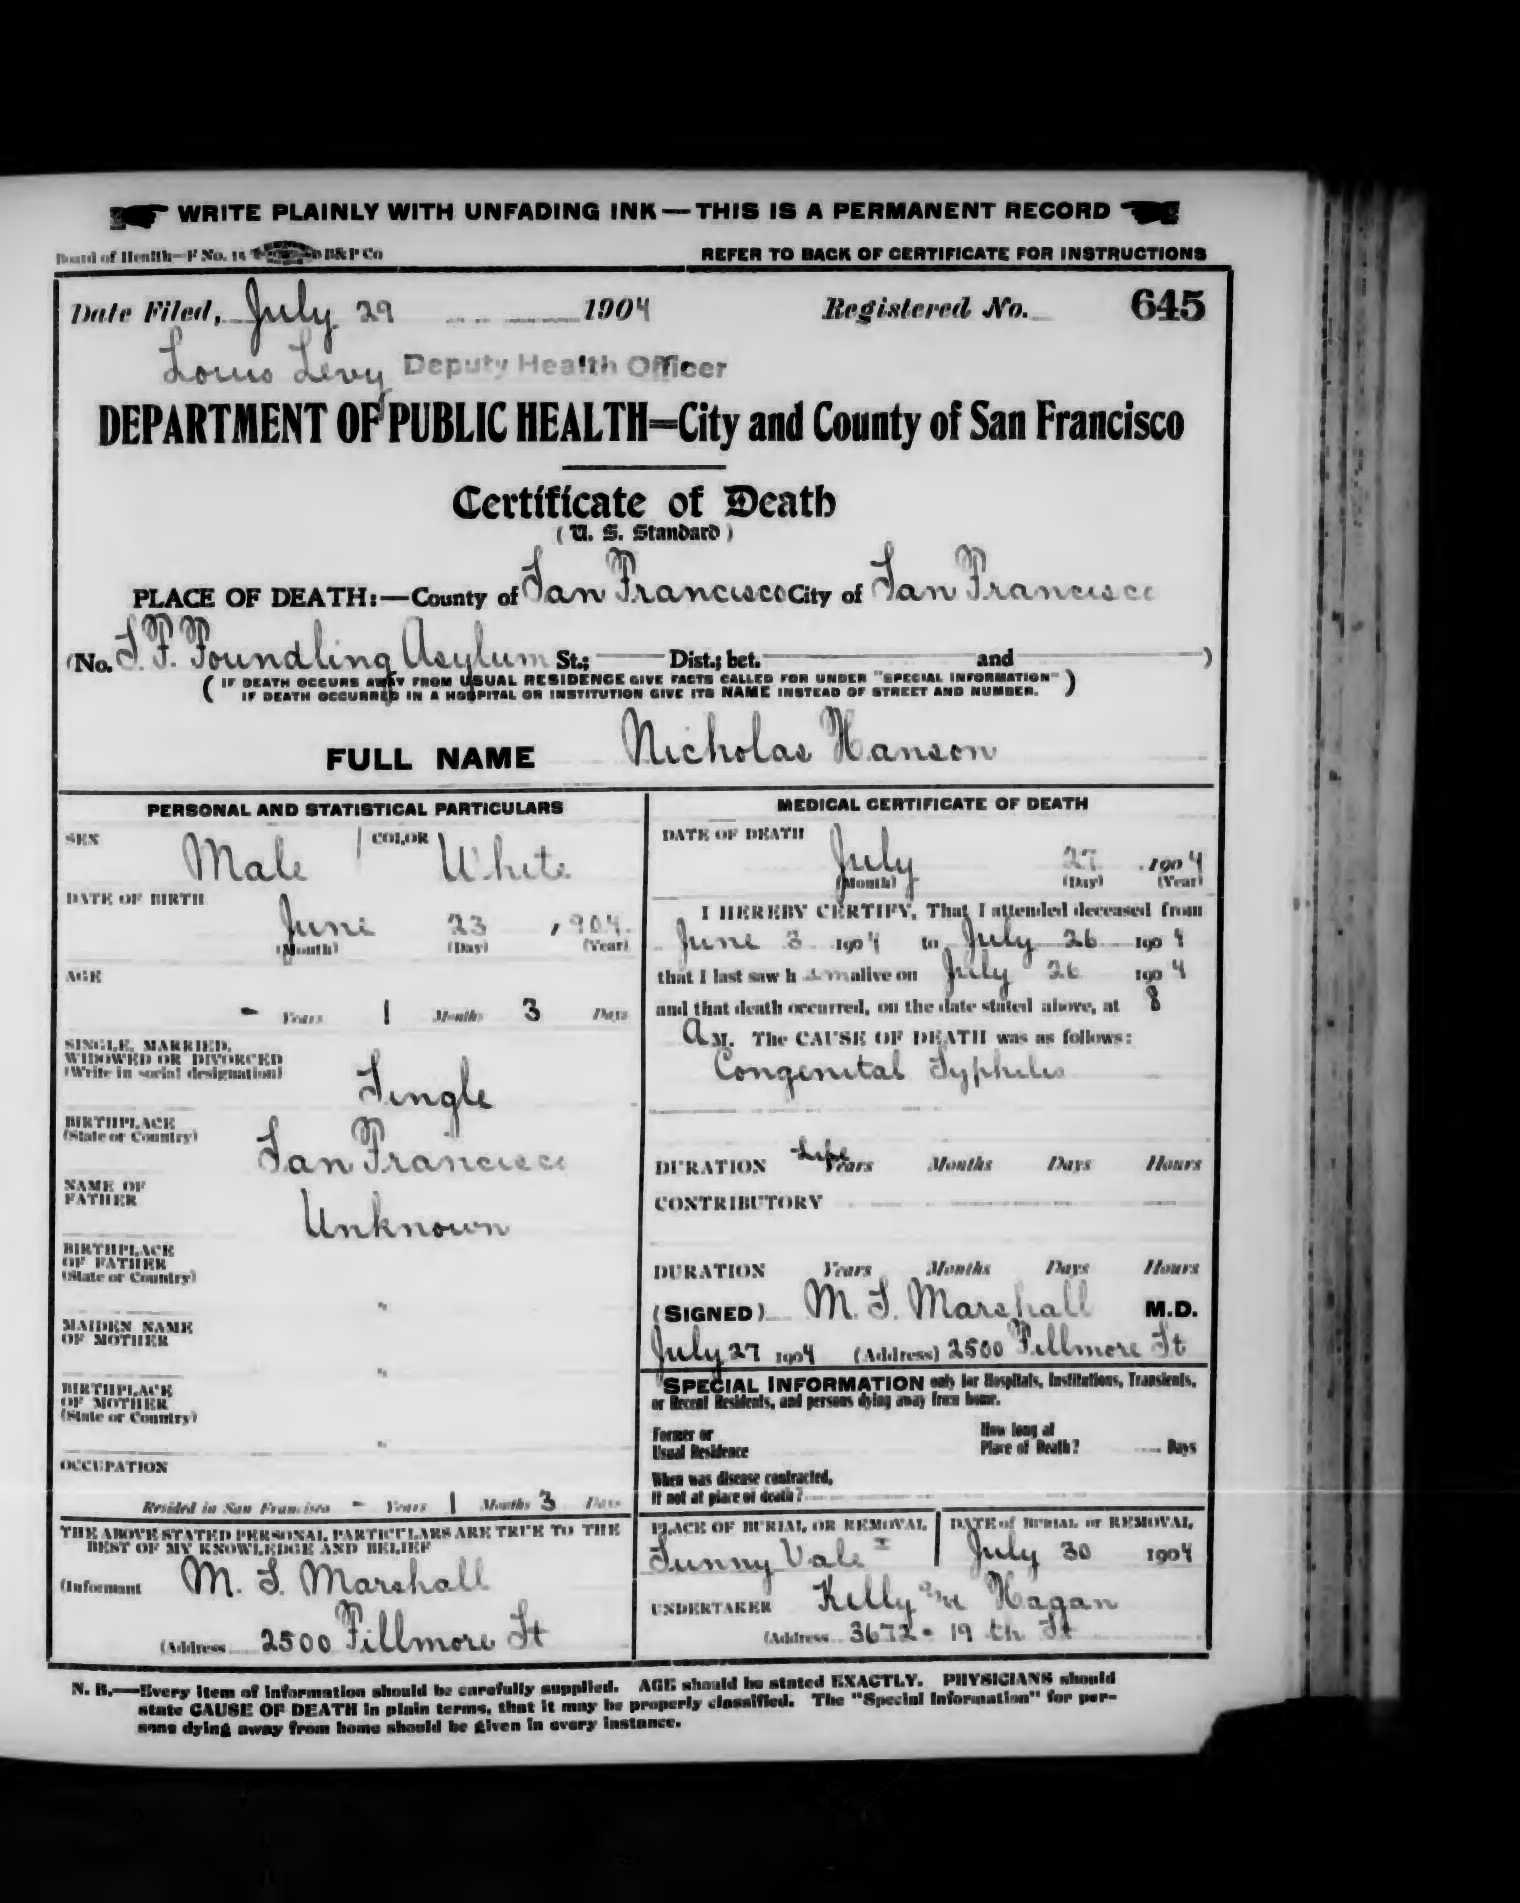 WRITE PLAINLY WITH UNFADING INK — THIS IS A PERMANENT RECORD
Board of Health—F No. 15 B&P Co REFER TO BACK OF CERTIFICATE FOR INSTRUCTIONS
Date Filed, July 29 1904 Registered No. 645
Louis Levy Deputy Health Officer
DEPARTMENT OF PUBLIC HEALTH=City and County of San Francisco
Certificate of Death
(U. S. Standard)
PLACE OF DEATH:—County of San Francisco City of San Francisco
(No. S.F. Foundling Asylum St.; Dist.; bet. and )
( IF DEATH OCCURS AWAY FROM USUAL RESIDENCE GIVE FACTS CALLED FOR UNDER "SPECIAL INFORMATION" )
IF DEATH OCCURRED IN A HOSPITAL OR INSTITUTION GIVE ITS NAME INSTEAD OF STREET AND NUMBER.
FULL NAME Nicholas Hanson
PERSONAL AND STATISTICAL PARTICULARS
SEX Male COLOR White
DATE OF BIRTH
June 23, 1904.
(Month) (Day) (Year)
AGE
- Years 1 Months 3 Days
SINGLE, MARRIED,
WIDOWED OR DIVORCED
(Write in social designation)
Single
BIRTHPLACE
(State or Country)
San Francisco
NAME OF
FATHER
Unknown
BIRTHPLACE
OF FATHER
(State or Country)
"
MAIDEN NAME
OF MOTHER
"
BIRTHPLACE
OF MOTHER
(State or Country)
"
OCCUPATION
Resided in San Francisco - Years 1 Months 3 Days
THE ABOVE STATED PERSONAL PARTICULARS ARE TRUE TO THE
BEST OF MY KNOWLEDGE AND BELIEF
(Informant M. S. Marshall
(Address 2500 Fillmore St
MEDICAL CERTIFICATE OF DEATH
DATE OF DEATH
July 27 1904
(Month) (Day) (Year)
I HEREBY CERTIFY, That I attended deceased from
June 3 1904 to July 26 1904
that I last saw him alive on July 26 1904
and that death occurred, on the date stated above, at 8
A M. The CAUSE OF DEATH was as follows:
Congenital Syphilis
DURATION Life Years Months Days Hours
CONTRIBUTORY
DURATION Years Months Days Hours
(SIGNED) M. S. Marshall M.D.
July 27 1904 (Address) 2500 Fillmore St
SPECIAL INFORMATION only for Hospitals, Institutions, Transients,
or Recent Residents, and persons dying away from home.
Former or
Usual Residence
How long at
Place of Death? Days
When was disease contracted,
If not at place of death?
PLACE OF BURIAL OR REMOVAL
Sunny Vale
DATE of BURIAL or REMOVAL
July 30 1904
UNDERTAKER Kelly Hagan
(Address 3672 - 19 th St
N. B.—Every item of information should be carefully supplied. AGE should be stated EXACTLY. PHYSICIANS should
state CAUSE OF DEATH in plain terms, that it may be properly classified. The "Special Information" for per-
sons dying away from home should be given in every instance.